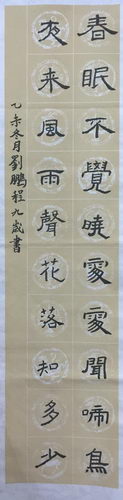 春眠不覺曉處處聞啼鳥
夜来風雨聲花落知多少
乙未冬月劉鵬程九歲書